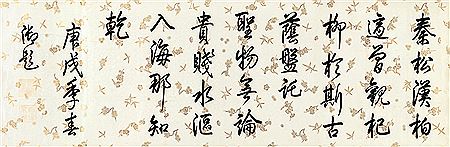 秦松漢柏
適曾觀杞
柳於斯古
蔭盤託
聖物無論
貴賤水漚
入海那知
乾
庚戌季春
御題